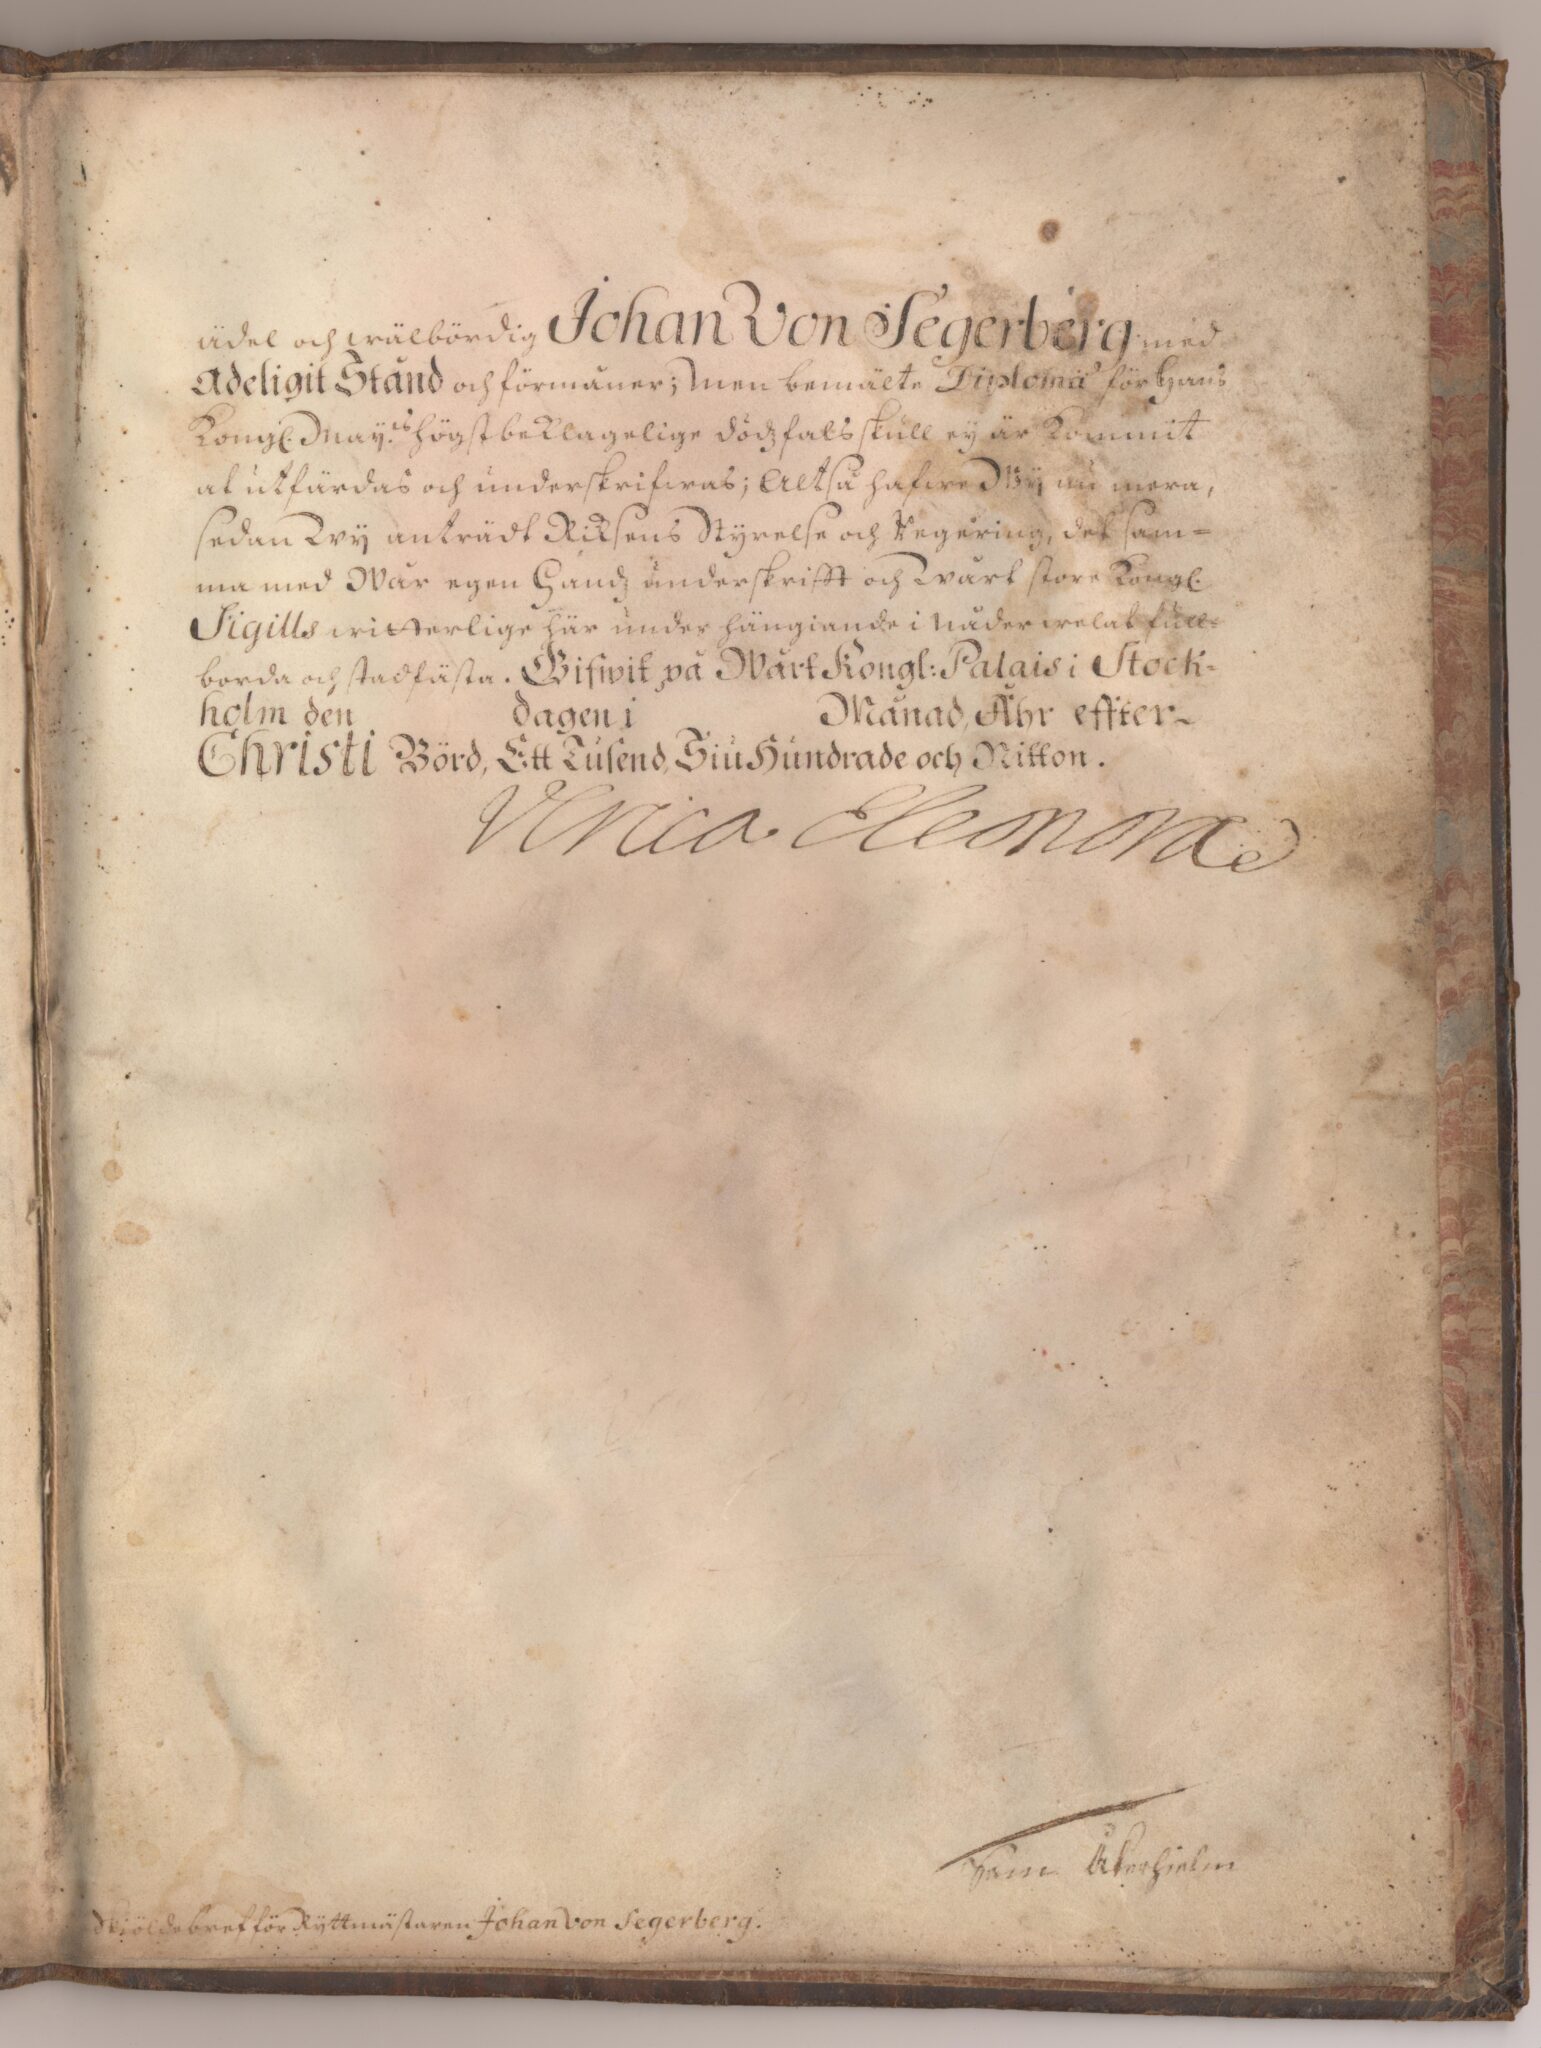 ädel och wälbördig Johan Von Segerberg med
Adeligit Stånd och förmåner; Men bemälte Diploma för Hans
Kongl. May:ts högstbeklagelige dödzfals skull ey är kommit
at utfärdas och underskrifwas; Altså hafwe Wy nu mera,
sedan Wy anträdt Riksens Styrelse och Regering, det sam=
ma med Wår egen Handz underskrifft och Wårt store Kongl.
Sigills witterlige här under hängiande i Nåder welat full=
borda och stadfästa. Gifwit på Wårt Kongl: Palais i Stock=
holm den dagen i Månad, Åhr effter
Christi Börd, Ett Tusend, Siu Hundrade och Nitton.
Ulrica Eleonora
Sam Åkerhielm
Skiöldebref för Ryttmästaren Johan Von Segerberg.